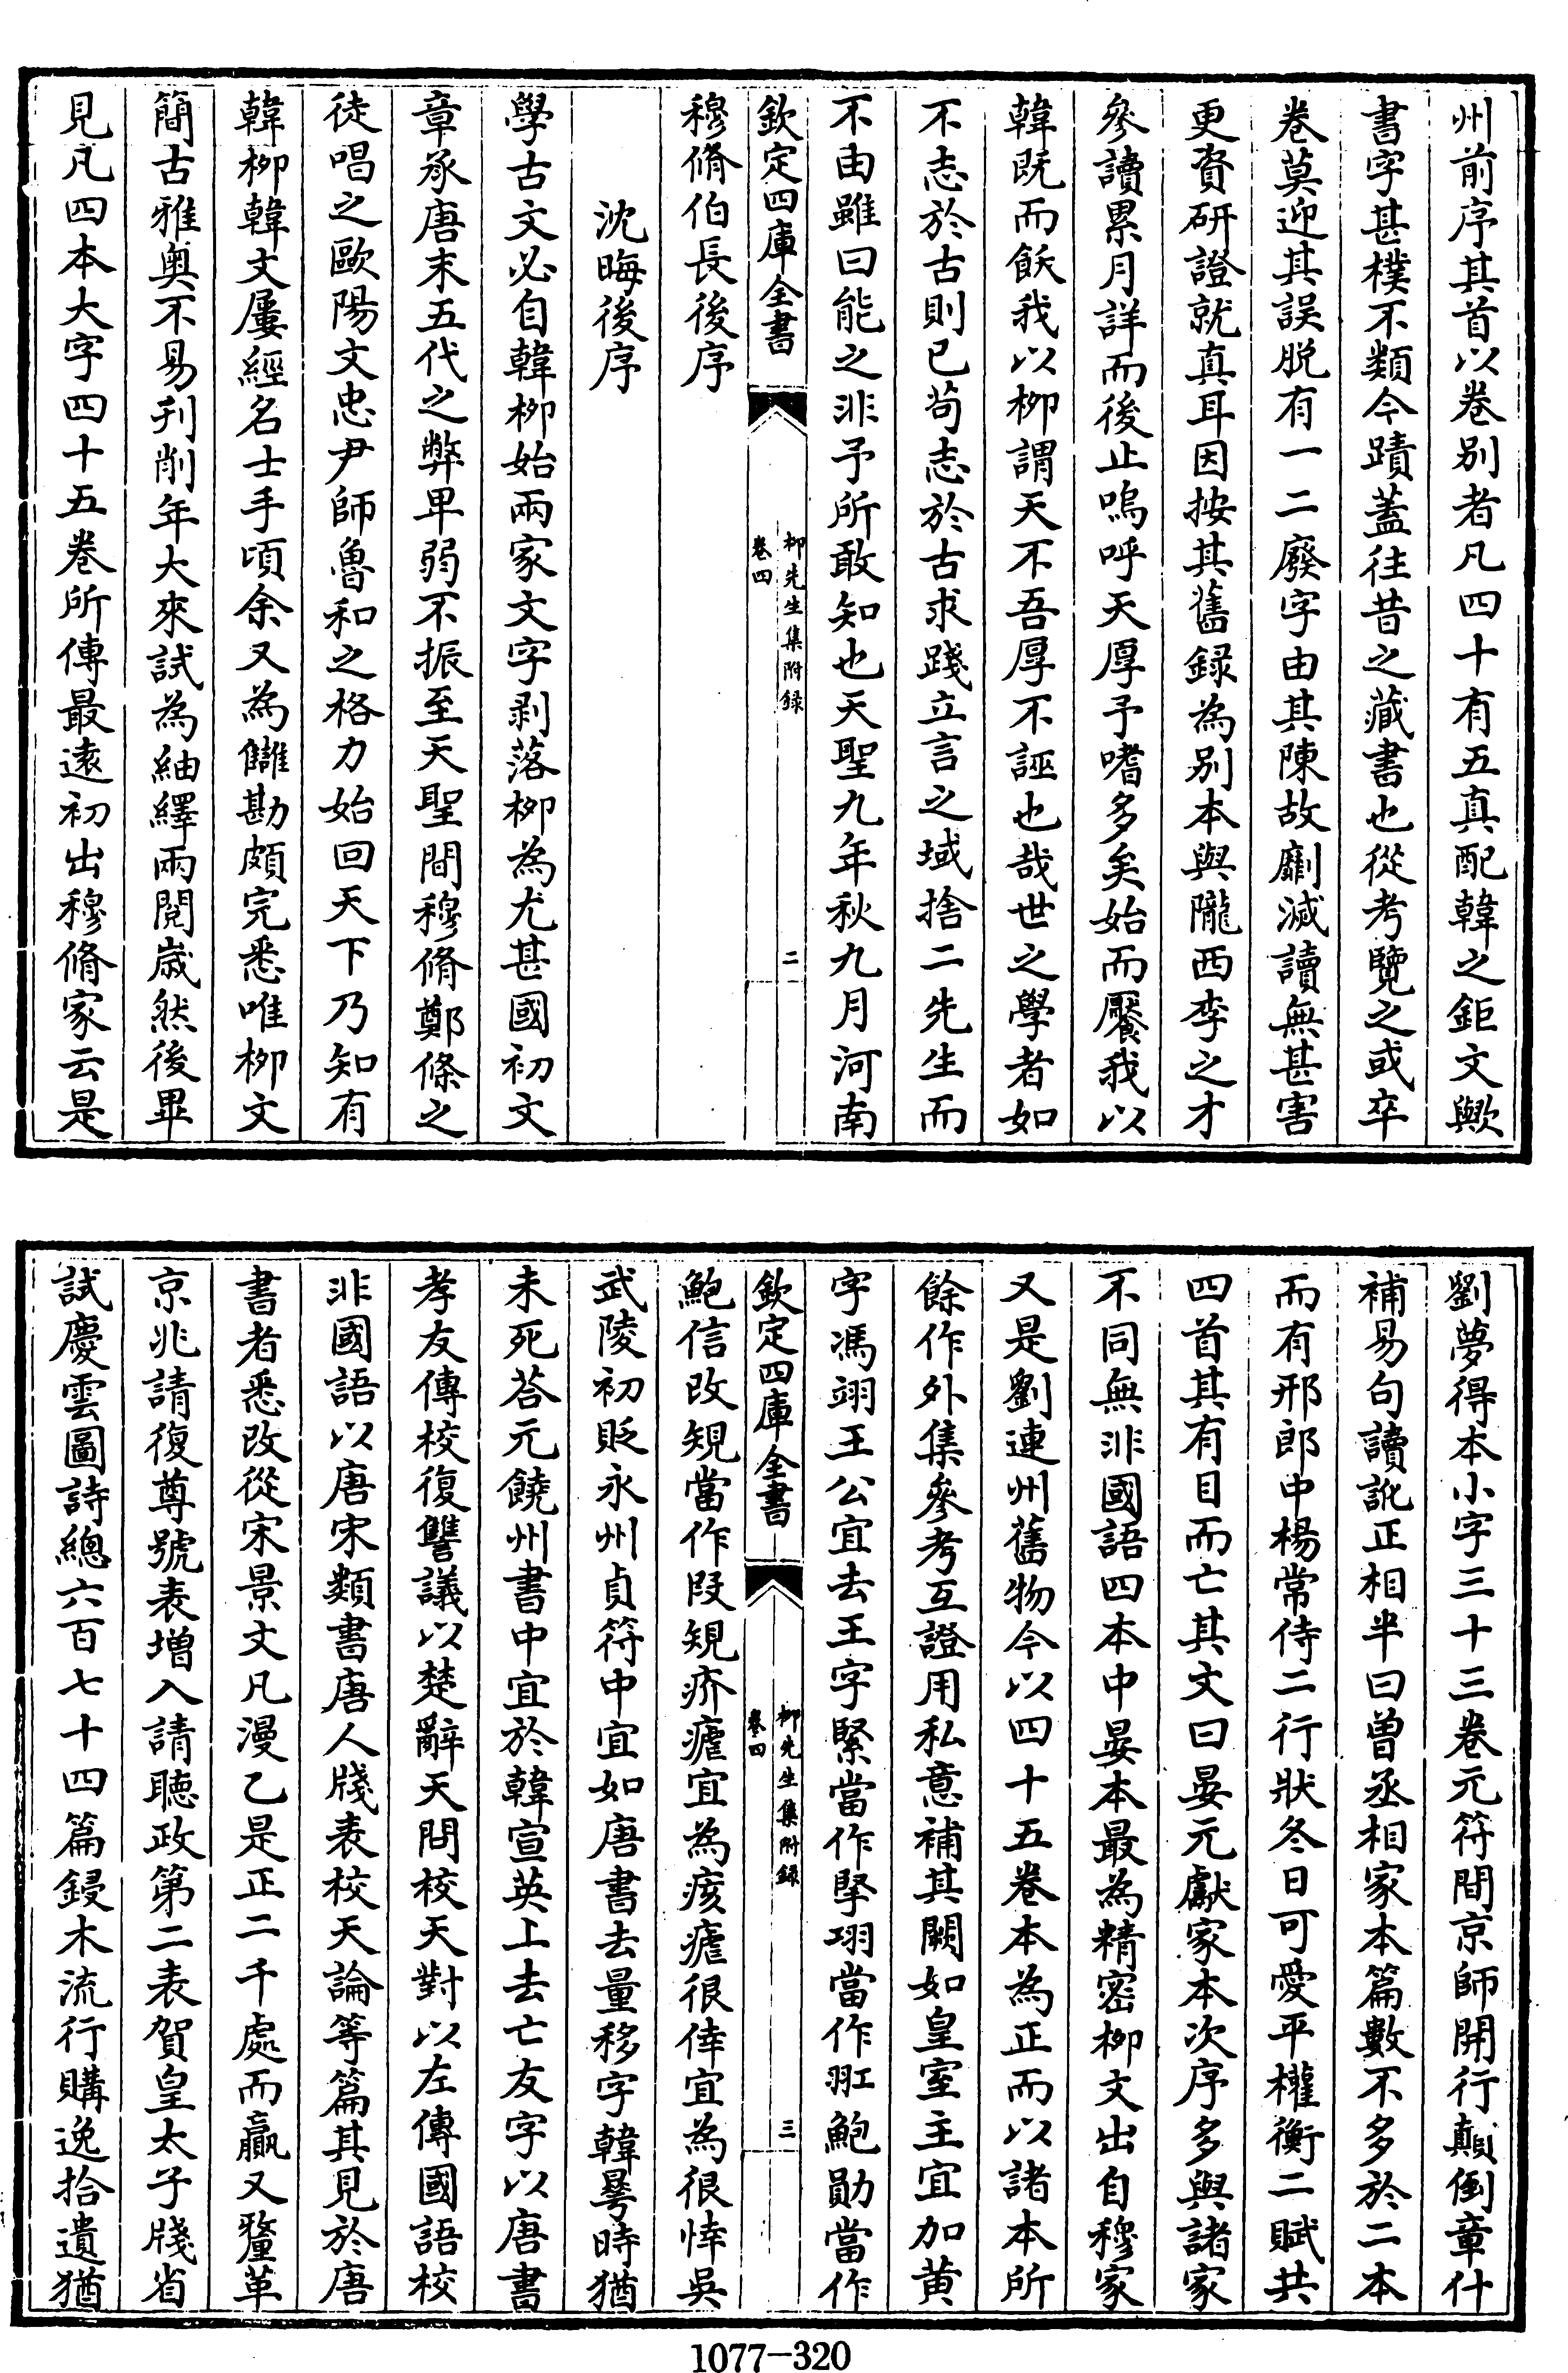 州前序其首以卷别者凡四十有五真配韓之鉅文歟
書字甚樸不類今蹟蓋往昔之藏書也從考覽之或卒
卷莫迎其誤脱有一二廢字由其陳故劘滅讀無甚害
更資研證就真耳因按其舊録為别本與隴西李之才
參讀累月詳而後止嗚呼天厚予嗜多矣始而饜我以
韓既而飫我以栁謂天不吾厚不誣也哉世之學者如
不志於古則已茍志於古求踐立言之域捨二先生而
不由雖曰能之非予所敢知也天聖九年秋九月河南
欽定四庫全書
栁先生集附録
卷四
二
穆脩伯長後序
沈晦後序
學古文必自韓栁始兩家文字剥落栁為尤甚國初文
章承唐末五代之弊卑弱不振至天聖間穆脩鄭條之
徒唱之歐陽文忠尹師魯和之格力始回天下乃知有
韓栁韓文屢經名士手頃余又為讎勘頗完悉唯栁文
簡古雅奥不易刋削年大來試為紬繹兩閲嵗然後畢
見凡四本大字四十五卷所傳最逺初出穆脩家云是
劉夢得本小字三十三卷元符間京師開行顛倒章什
補易句讀訛正相半曰曾丞相家本篇數不多於二本
而有邢郎中楊常侍二行狀冬日可愛平權衡二賦共
四首其有目而亡其文曰晏元獻家本次序多與諸家
不同無非國語四本中晏本最為精密栁文出自穆家
又是劉連州舊物今以四十五卷本為正而以諸本所
餘作外集參考互證用私意補其闕如皇室主宜加黄
字馮翊王公宜去王字緊當作㹂㺬當作䍔鮑勛當作
欽定四庫全書
栁先生集附録
卷四
三
鮑信改規當作㱾規疥瘧宜為痎瘧很倖宜為很悻吳
武陵初貶永州貞符中宜如唐書去量移字韓曅時猶
未死荅元饒州書中宜於韓宣英上去亡友字以唐書
孝友傳校復讐議以楚辭天問校天對以左傳國語校
非國語以唐宋類書唐人牋表校天論等篇其見於唐
書者悉改從宋景文凡漫乙是正二千處而贏又釐革
京兆請復尊號表増入請聽政第二表賀皇太子牋省
試慶雲圖詩總六百七十四篇鋟木流行購逸拾遺猶
1077-320